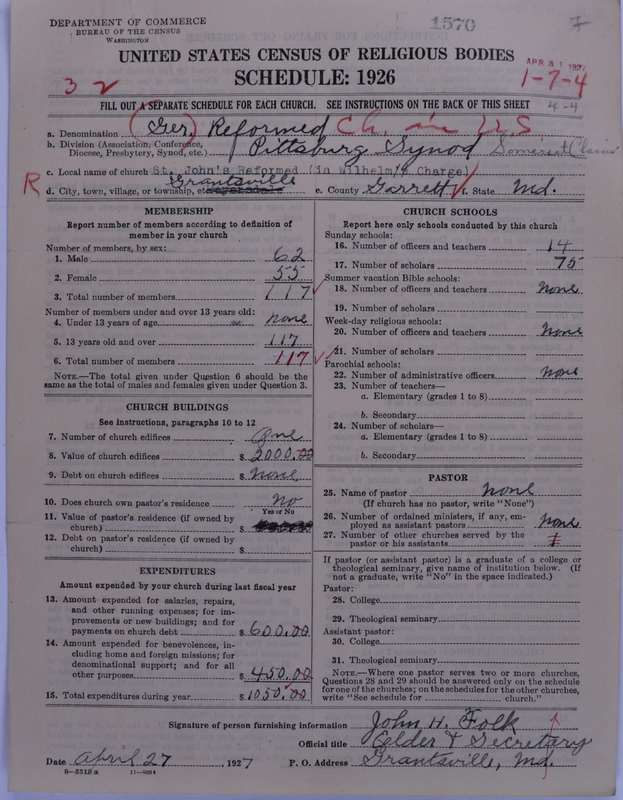 DEPARTMENT OF COMMERCE
BUREAU OF THE CENSUS
WASHINGTON
1570
7
UNITED STATES CENSUS OF RELIGIOUS BODIES
SCHEDULE: 1926
3 2
1-7-4
4-4
FILL OUT A SEPARATE SCHEDULE FOR EACH CHURCH. SEE INSTRUCTIONS ON THE BACK OF THIS SHEET
a. Denomination (Ger.) Reformed Ch. in U.S
b. Division (Association, Conference, Diocese, Presbytery, Synod, etc.) Pittsburg Synod Somerset Classis
c. Local name of church St. John's Reformed (in Wilhelm's Charge)
R d. City, town, village, or township, Grantsville e. County Garrett f. State Md.
MEMBERSHIP
Report number of members according to definition of member in your church
Number of members, by sex:
1. Male 62
2. Female 55
3. Total number of members 117
Number of members under and over 13 years old:
4. Under 13 years of age none
5. 13 years old and over 117
6. Total number of members 117
NOTE.—The total given under Question 6 should be the same as the total of males and females given under Question 3.
CHURCH BUILDINGS
See instructions, paragraphs 10 to 12
7. Number of church edifices One
8. Value of church edifices $ 2000.00
9. Debt on church edifices $ None
10. Does church own pastor's residence No
Yes or No
11. Value of pastor's residence (if owned by church) $
12. Debt on pastor's residence (if owned by church) $
EXPENDITURES
Amount expended by your church during last fiscal year
13. Amount expended for salaries, repairs, and other running expenses; for improvements or new buildings; and for payments on church debt $ 600.00
14. Amount expended for benevolences, including home and foreign missions; for denominational support; and for all other purposes $ 450.00
15. Total expenditures during year $ 1050.00
CHURCH SCHOOLS
Report here only schools conducted by this church
Sunday schools:
16. Number of officers and teachers 14
17. Number of scholars 75
Summer vacation Bible schools:
18. Number of officers and teachers none
19. Number of scholars
Week-day religious schools:
20. Number of officers and teachers None
21. Number of scholars
Parochial schools:
22. Number of administrative officers None
23. Number of teachers—
a. Elementary (grades 1 to 8)
b. Secondary
24. Number of scholars—
a. Elementary (grades 1 to 8)
b. Secondary
PASTOR
25. Name of pastor none
(If church has no pastor, write "None")
26. Number of ordained ministers, if any, employed as assistant pastors None
27. Number of other churches served by the pastor or his assistants
If pastor (or assistant pastor) is a graduate of a college or theological seminary, give name of institution below. (If not a graduate, write "No" in the space indicated.)
Pastor:
28. College
29. Theological seminary
Assistant pastor:
30. College
31. Theological seminary
NOTE.—Where one pastor serves two or more churches, Questions 28 and 29 should be answered only on the schedule for one of the churches; on the schedules for the other churches, write "See schedule for church."
Signature of person furnishing information John H. Folk
Official title Eelder & Secretary
Date April 27, 1927 P. O. Address Grantsville, Md.
8-5518 a 11-9054